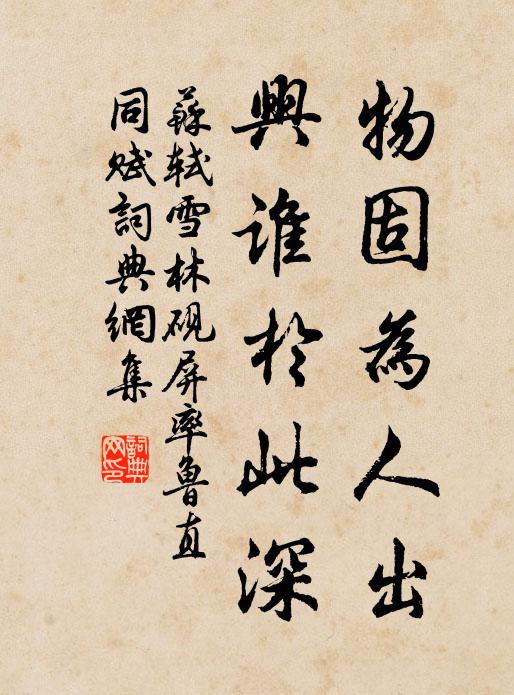 物固為人出
興誰於此深
蘇軾雪林硯屏率魯直
同賦詞典網集
詞典
网印